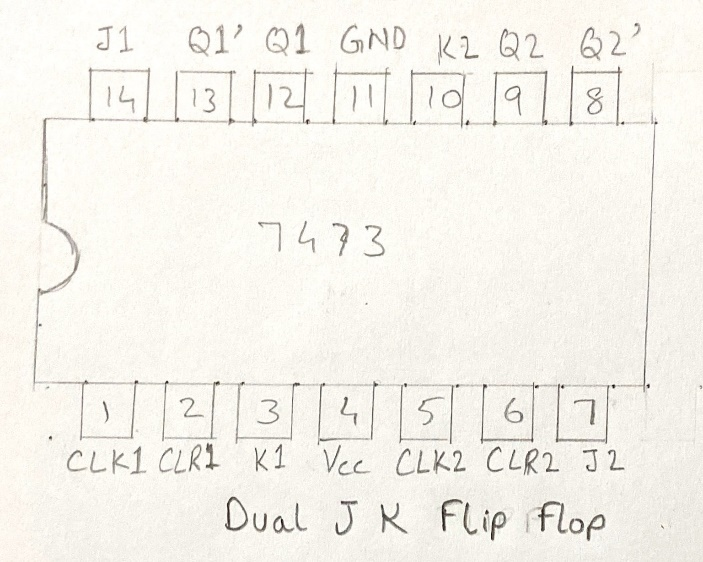 J1 Q1' Q1 GND K2 Q2 Q2'
14 13 12 11 10 9 8
7473
1 2 3 4 5 6 7
CLK1 CLR1 K1 Vcc CLK2 CLR2 J2
Dual J K Flip Flop